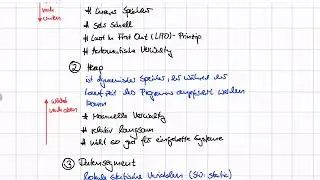 nach
unten
# linearer Speicher
# sehr schnell
# Last in First Out (LIFO) - Prinzip
# Automatische Verwaltung
② Heap
ist dynamischer Speicher, der während der
Laufzeit des Programms angefordert werden
kann
wächst
nach oben
# Manuelle Verwaltung
# relativ langsam
# nicht so gut für eingebettete Systeme
③ Datensegment
lokale statische Variablen (SW: static)